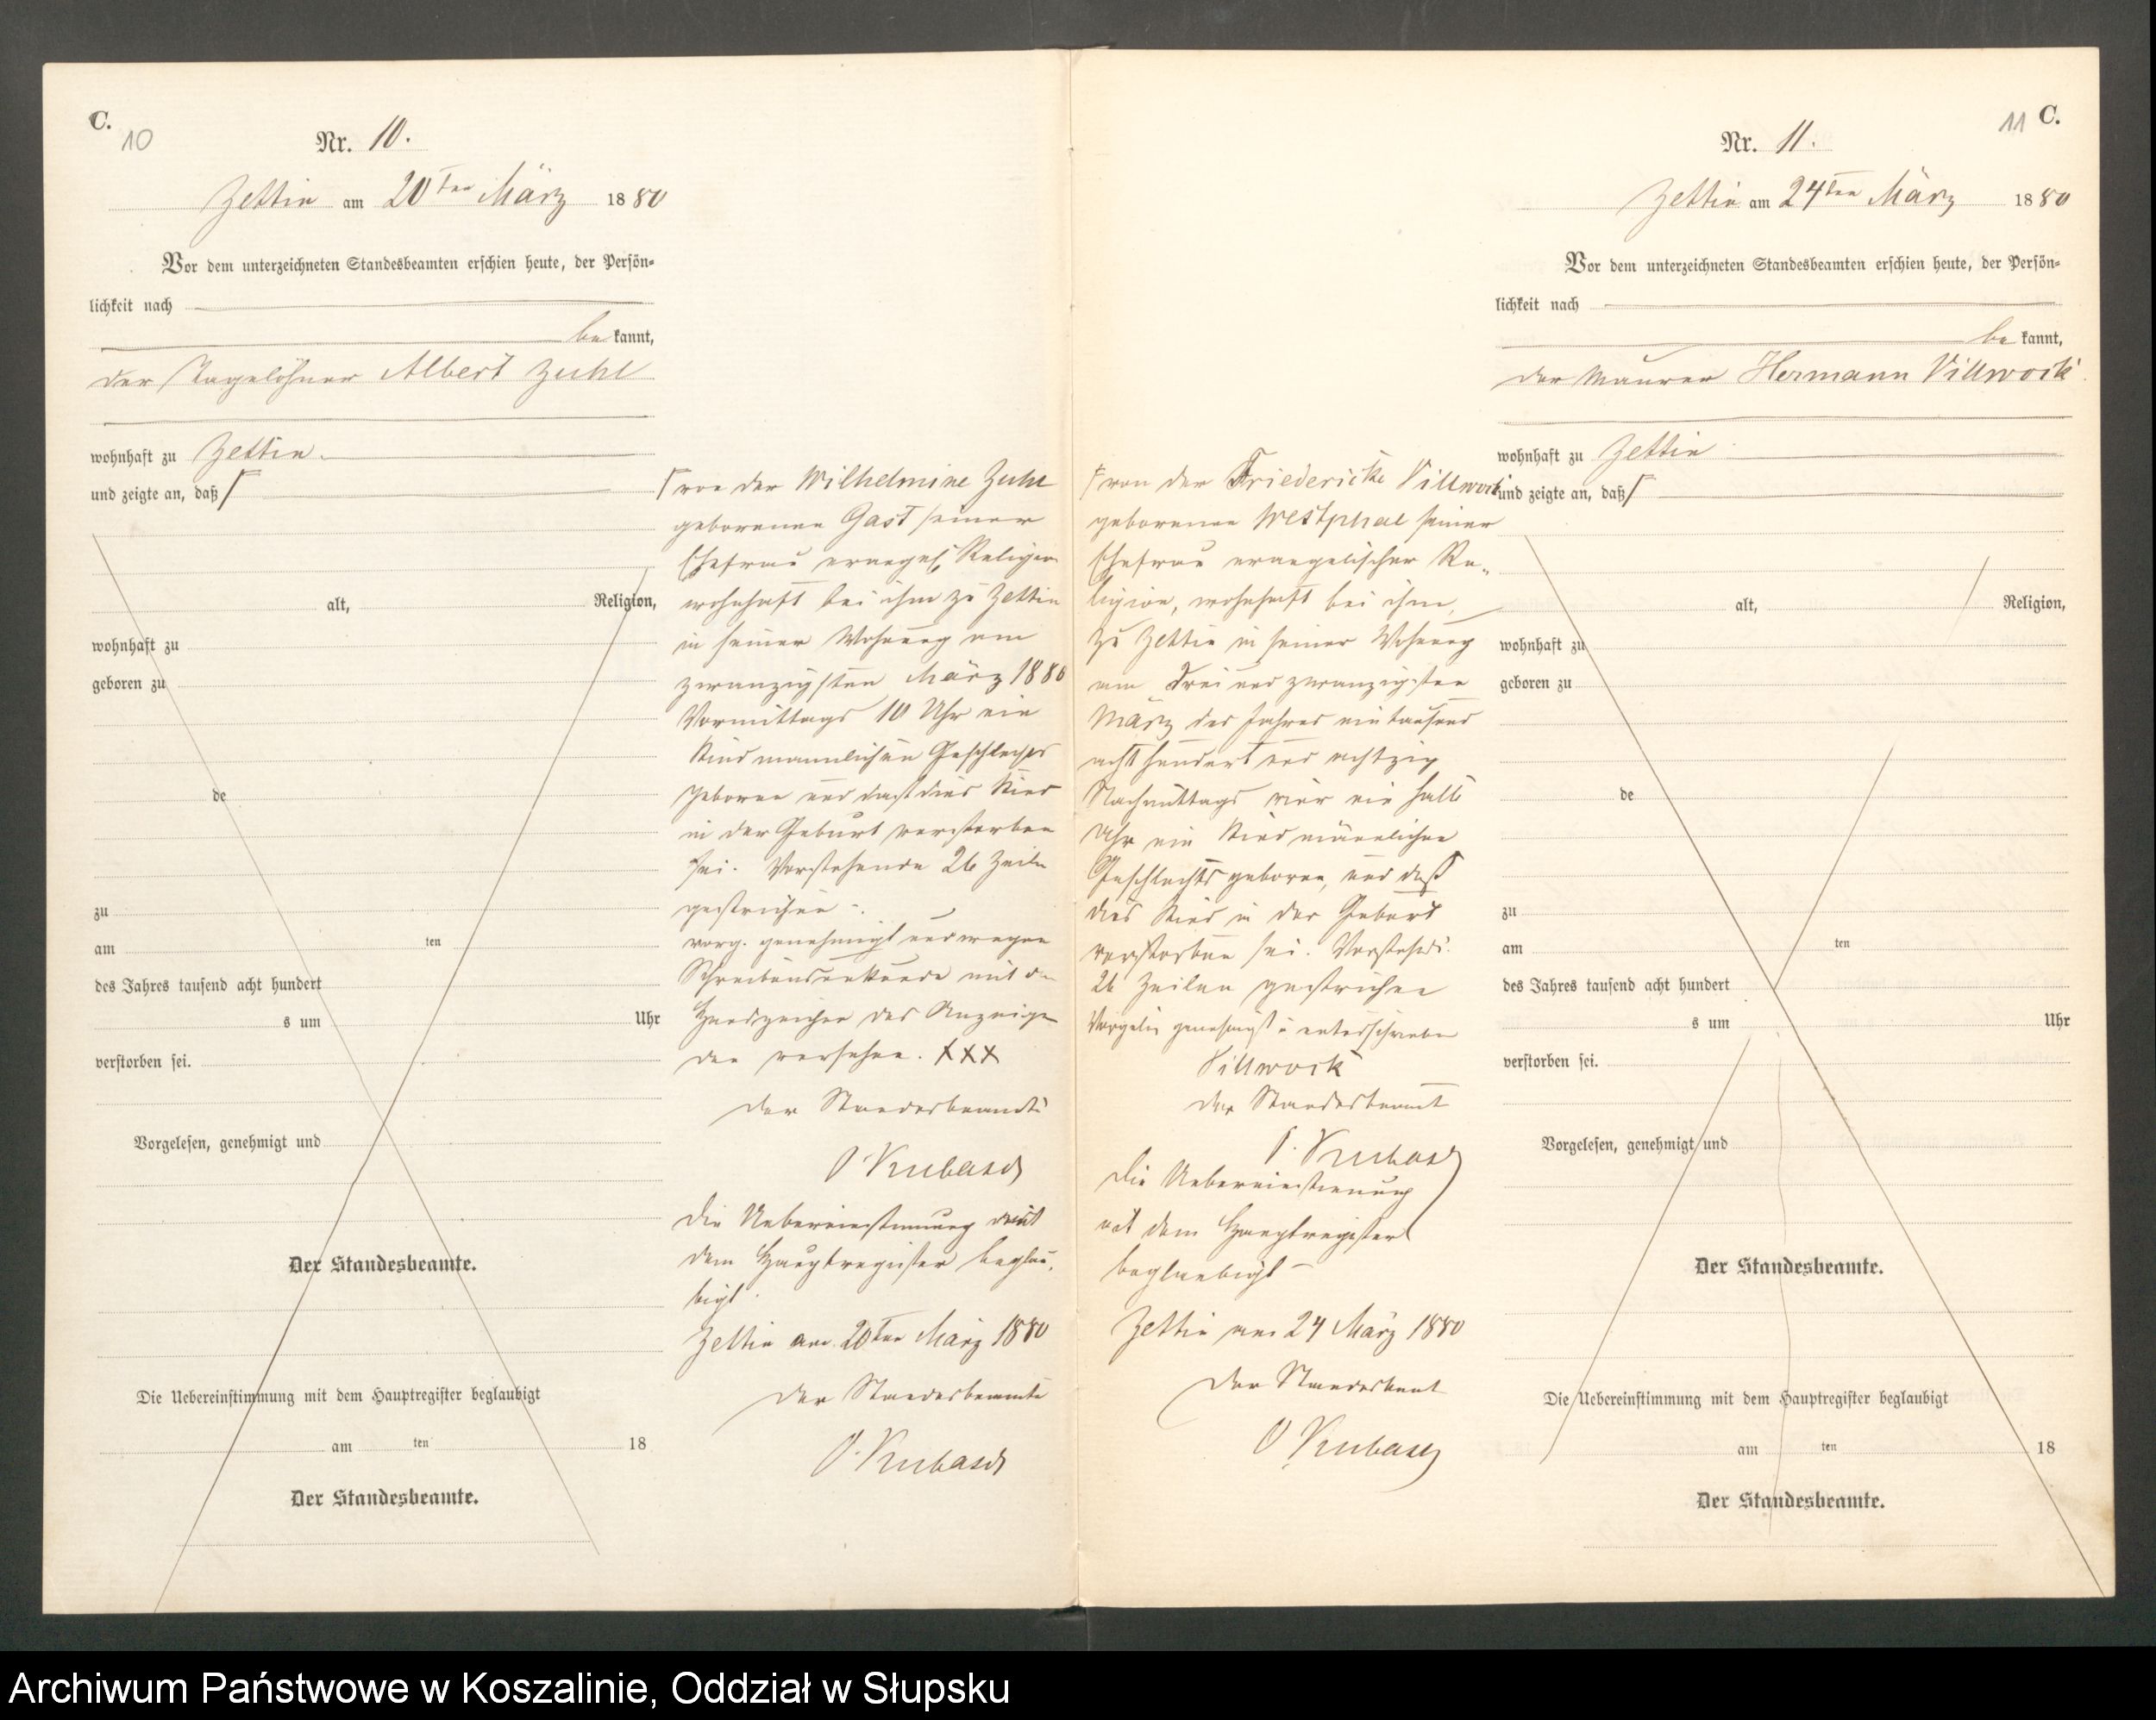 C.
10
Nr. 10.
Zettin am 20ten März 1880
Vor dem unterzeichneten Standesbeamten erschien heute, der Persön-
lichkeit nach
bekannt,
der Tagelöhner Albert Zuhl
wohnhaft zu Zettin.
und zeigte an, daß Γ
alt, Religion,
wohnhaft zu
geboren zu
de
zu
am ten
des Jahres tausend acht hundert
s um Uhr
verstorben sei.
Vorgelesen, genehmigt und
Der Standesbeamte.
Die Uebereinstimmung mit dem Hauptregister beglaubigt
am ten 18
Der Standesbeamte.
Γ von der Wilhelmine Zuhl
geborenen Gast seiner
Ehefrau evangel. Religion
wohnhaft bei ihm zu Zettin
in seiner Wohnung am
zwanzigsten März 1880
Vormittags 10 Uhr ein
Kind mannlichen Geschlechts
geboren und daß dies Kind
in der Geburt verstorben
sei. Vorstehende 26 Zeilen
gestrichen.
vorg. genehmigt und wegen
Schreibensunkunde mit den
Handzeichen des Anzeigen
den versehen. XXX
Der Standesbeamte
Krubasch
Die Uebereinstimmung mit
dem Hauptregister beglau-
bigt.
Zettin am 20ten März 1880
Der Standesbeamte
Krubasch
Γ von der Friedericke Villwock
geborenen Westphal seiner
Ehefrau evangelischer Re-
ligion, wohnhaft bei ihm,
zu Zettin in seiner Wohnung
am Drei und zwanzigsten
März des Jahres ein tausend
acht hundert und achtzig
Nachmittags vier ein halb
Uhr ein Kind männlichen
Geschlechts geboren, und daß
dies Kind in der Geburt
verstorben sei. Vorstehend.
26 Zeilen gestrichen
Vorgeles genehmigt u unterschrieben
Villwock
Der Standesbeamt
Krubasch
Die Uebereinstimmung
mit dem Hauptregister
beglaubigt
Zettin am 24 März 1880
Der Standesbeamt
Krubasch
11 C.
Nr. 11.
Zettin am 24ten März 1880
Vor dem unterzeichneten Standesbeamten erschien heute, der Persön-
lichkeit nach
bekannt,
der Maurer Hermann Villwock
wohnhaft zu Zettin
und zeigte an, daß Γ
alt, Religion,
wohnhaft zu
geboren zu
de
zu
am ten
des Jahres tausend acht hundert
s um Uhr
verstorben sei.
Vorgelesen, genehmigt und
Der Standesbeamte.
Die Uebereinstimmung mit dem Hauptregister beglaubigt
am ten 18
Der Standesbeamte.
Archiwum Państwowe w Koszalinie, Oddział w Słupsku